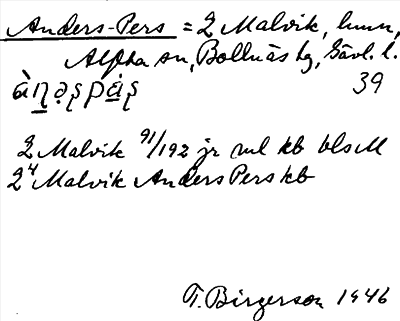 Anders-Pers = 2 Malvik, hmn,
Alfta sn, Bollnäs tg, Gävl. l.
àn̥ə̣ʂpáʂ 39
2 Malvik 91/192 jr ml kb bls M
2⁴ Malvik Anders Pers kb
T. Birgerson 1946